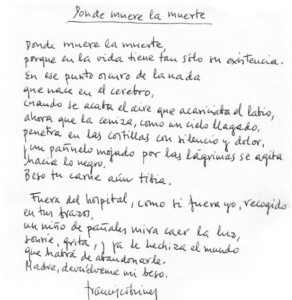 Donde muere la muerte
Donde muere la muerte,
porque en la vida tiene tan sólo su existencia.
En ese punto oscuro de la nada
que nace en el cerebro,
cuando se acaba el aire que acariciaba el labio,
ahora que la ceniza, como un cielo llagado,
penetra en las costillas con silencio y dolor,
y un pañuelo mojado por las lágrimas se agita
hacia lo negro.
Beso tu carne aún tibia.
Fuera del hospital, como si fuera yo, recogido
en tus brazos,
un niño de pañales mira caer la luz,
sonríe, grita, y ya le hechiza el mundo
que habrá de abandonarle.
Madre, devuélveme mi beso.